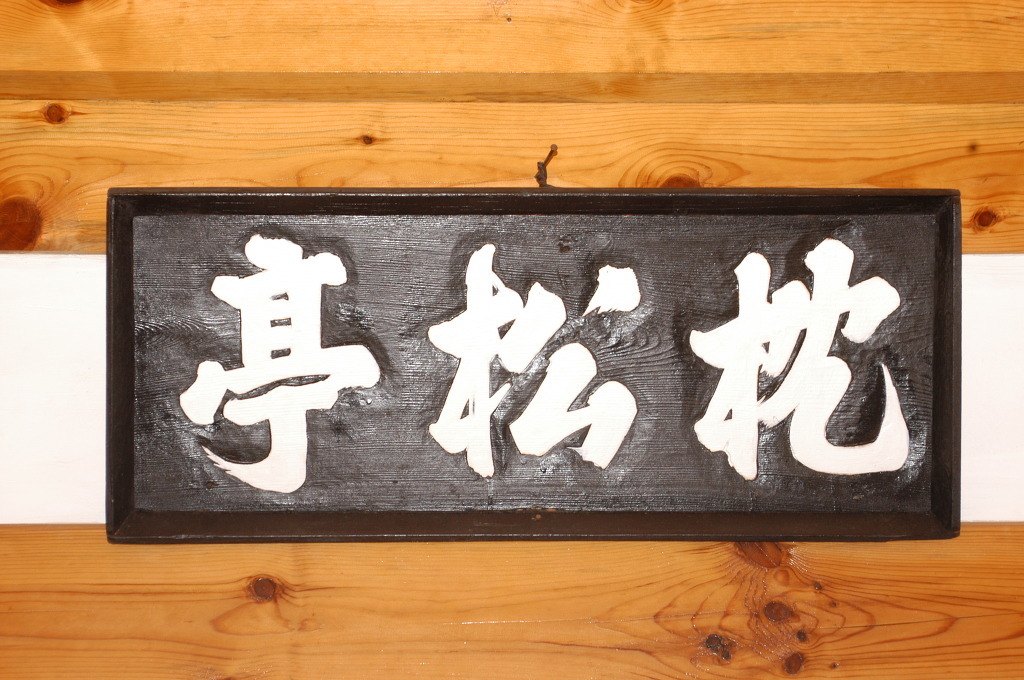 枕松亭